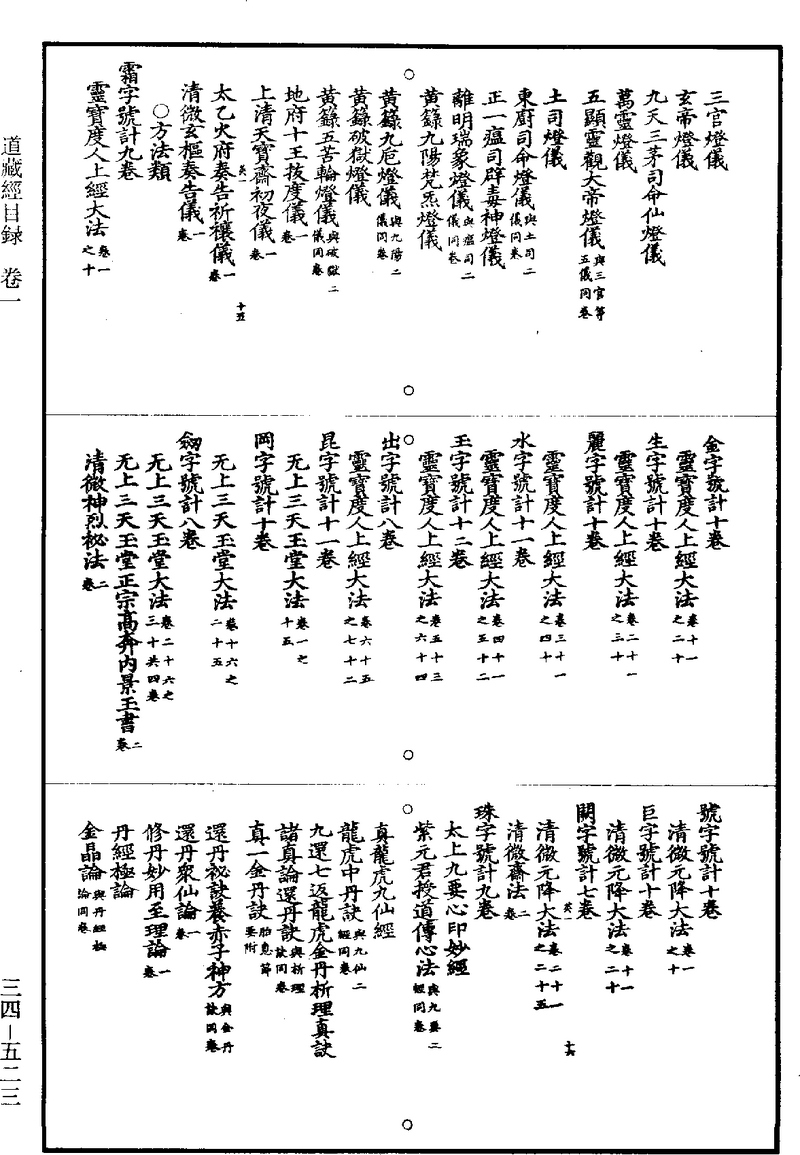 道藏經目録 卷一
三官燈儀
玄帝燈儀
九天三茅司命仙燈儀
萬靈燈儀
五顯靈觀大帝燈儀 與三官等五儀同卷
土司燈儀
東厨司命燈儀 與土司二儀同卷
正一瘟司辟毒神燈儀
離明瑞象燈儀 與瘟司二儀同卷
黃籙九陽梵炁燈儀
黃籙九巵燈儀 與九陽二儀同卷
黃籙破獄燈儀
黃籙五苦輪燈儀 與破獄二儀同卷
地府十王拔度儀 一卷
上清天寶齋初夜儀 一卷
太乙火府奏告祈禳儀 一卷
英一 十五
清微玄樞奏告儀 一卷
○方法類
霜字號計九卷
靈寶度人上經大法 卷一之十
金字號計十卷
靈寶度人上經大法 卷十一之二十
生字號計十卷
靈寶度人上經大法 卷二十一之三十
麗字號計十卷
靈寶度人上經大法 卷三十一之四十
水字號計十一卷
靈寶度人上經大法 卷四十一之五十二
玉字號計十二卷
靈寶度人上經大法 卷五十三之六十四
出字號計八卷
靈寶度人上經大法 卷六十五之七十二
昆字號計十一卷
无上三天玉堂大法 卷一之十五
岡字號計十卷
无上三天玉堂大法 卷十六之二十五
劒字號計八卷
无上三天玉堂大法 卷二十六之三十共四卷
无上三天玉堂正宗高奔内景玉書 二卷
清微神烈祕法 二卷
號字號計十卷
清微元降大法 卷一之十
巨字號計十卷
清微元降大法 卷十一之二十
闕字號計七卷
英一 十六
清微元降大法 卷二十一之二十五
清微齋法 二卷
珠字號計九卷
太上九要心印妙經
紫元君授道傳心法 與九要二經同卷
真龍虎九仙經
龍虎中丹訣 與九仙二經同卷
九還七返龍虎金丹析理真訣
諸真論還丹訣 與析理訣同卷
真一金丹訣 胎息節要附
還丹祕訣養赤子神方 與金丹訣同卷
還丹衆仙論 一卷
修丹妙用至理論 一卷
丹經極論
金晶論 與丹經極論同卷
三四－五二三